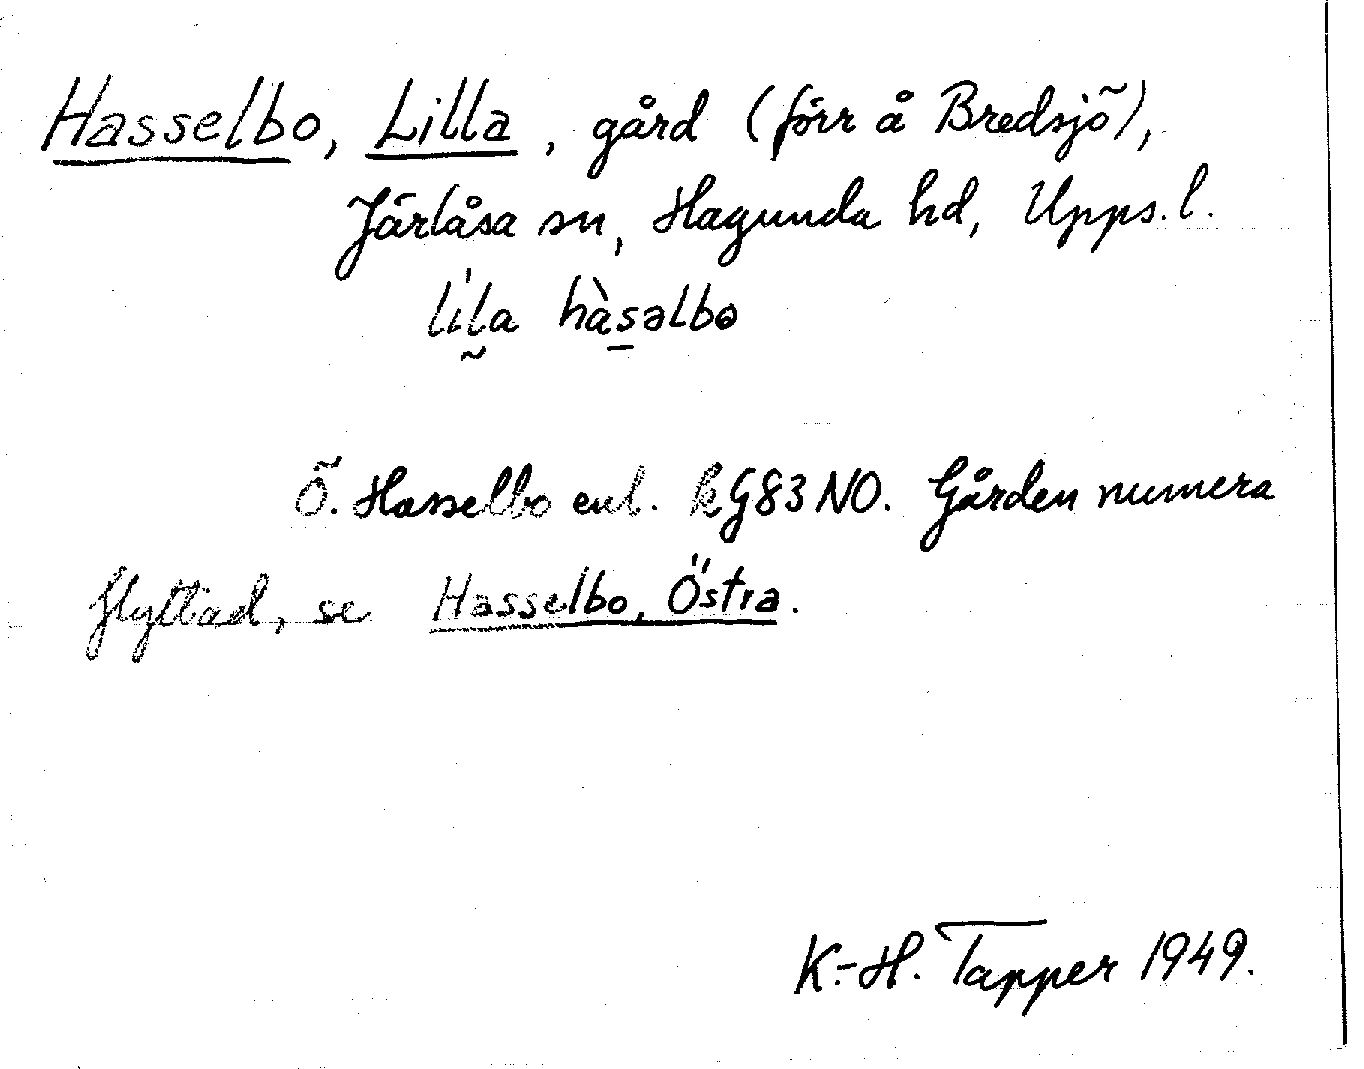 Hasselbo, Lilla, gård (förr å Bredsjö),
Järlåsa sn, Hagunda hd, Upps. l.
lìl̰a hàs̲əlbo
Ö. Hasselbo enl. kG83NO. Gården numera
flyttad, se Hasselbo, Östra.
K.-H. Tapper 1949.